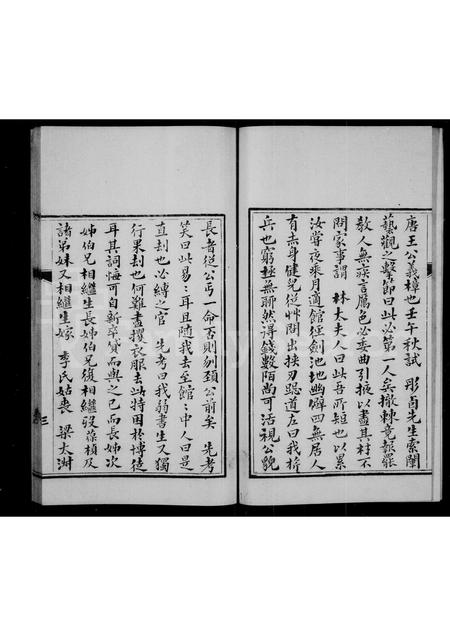 唐王公義樟也壬午秋試 彤甫先生索闈
藝觀之擊節曰此必第一人矣撤棘竟報罷
教人無疾言厲色必委曲引掖以盡其材不
問家事謂 林太夫人曰此吾所短也以累
汝嘗夜乘月適館徑劍池地幽僻四無居人
有赤身健兒從艸間出挾刃跽道左曰我折
兵也窮極無聊然得錢數陌尚可活視公貌
長者從公丐一命否則剄頸公前矣 先考
笑曰此易耳且隨我去至館館中人曰是
直刦也必縛之官 先考曰我弱書生又獨
行果刦也何難盡攫衣服去此特困於博徒
耳其詞悔可自新卒貸而與之已而長姊次
姊伯兄相繼生長姊伯兄復相繼歿葆楨及
諸弟妹又相繼生嫁 季氏姑喪 梁太淑
三